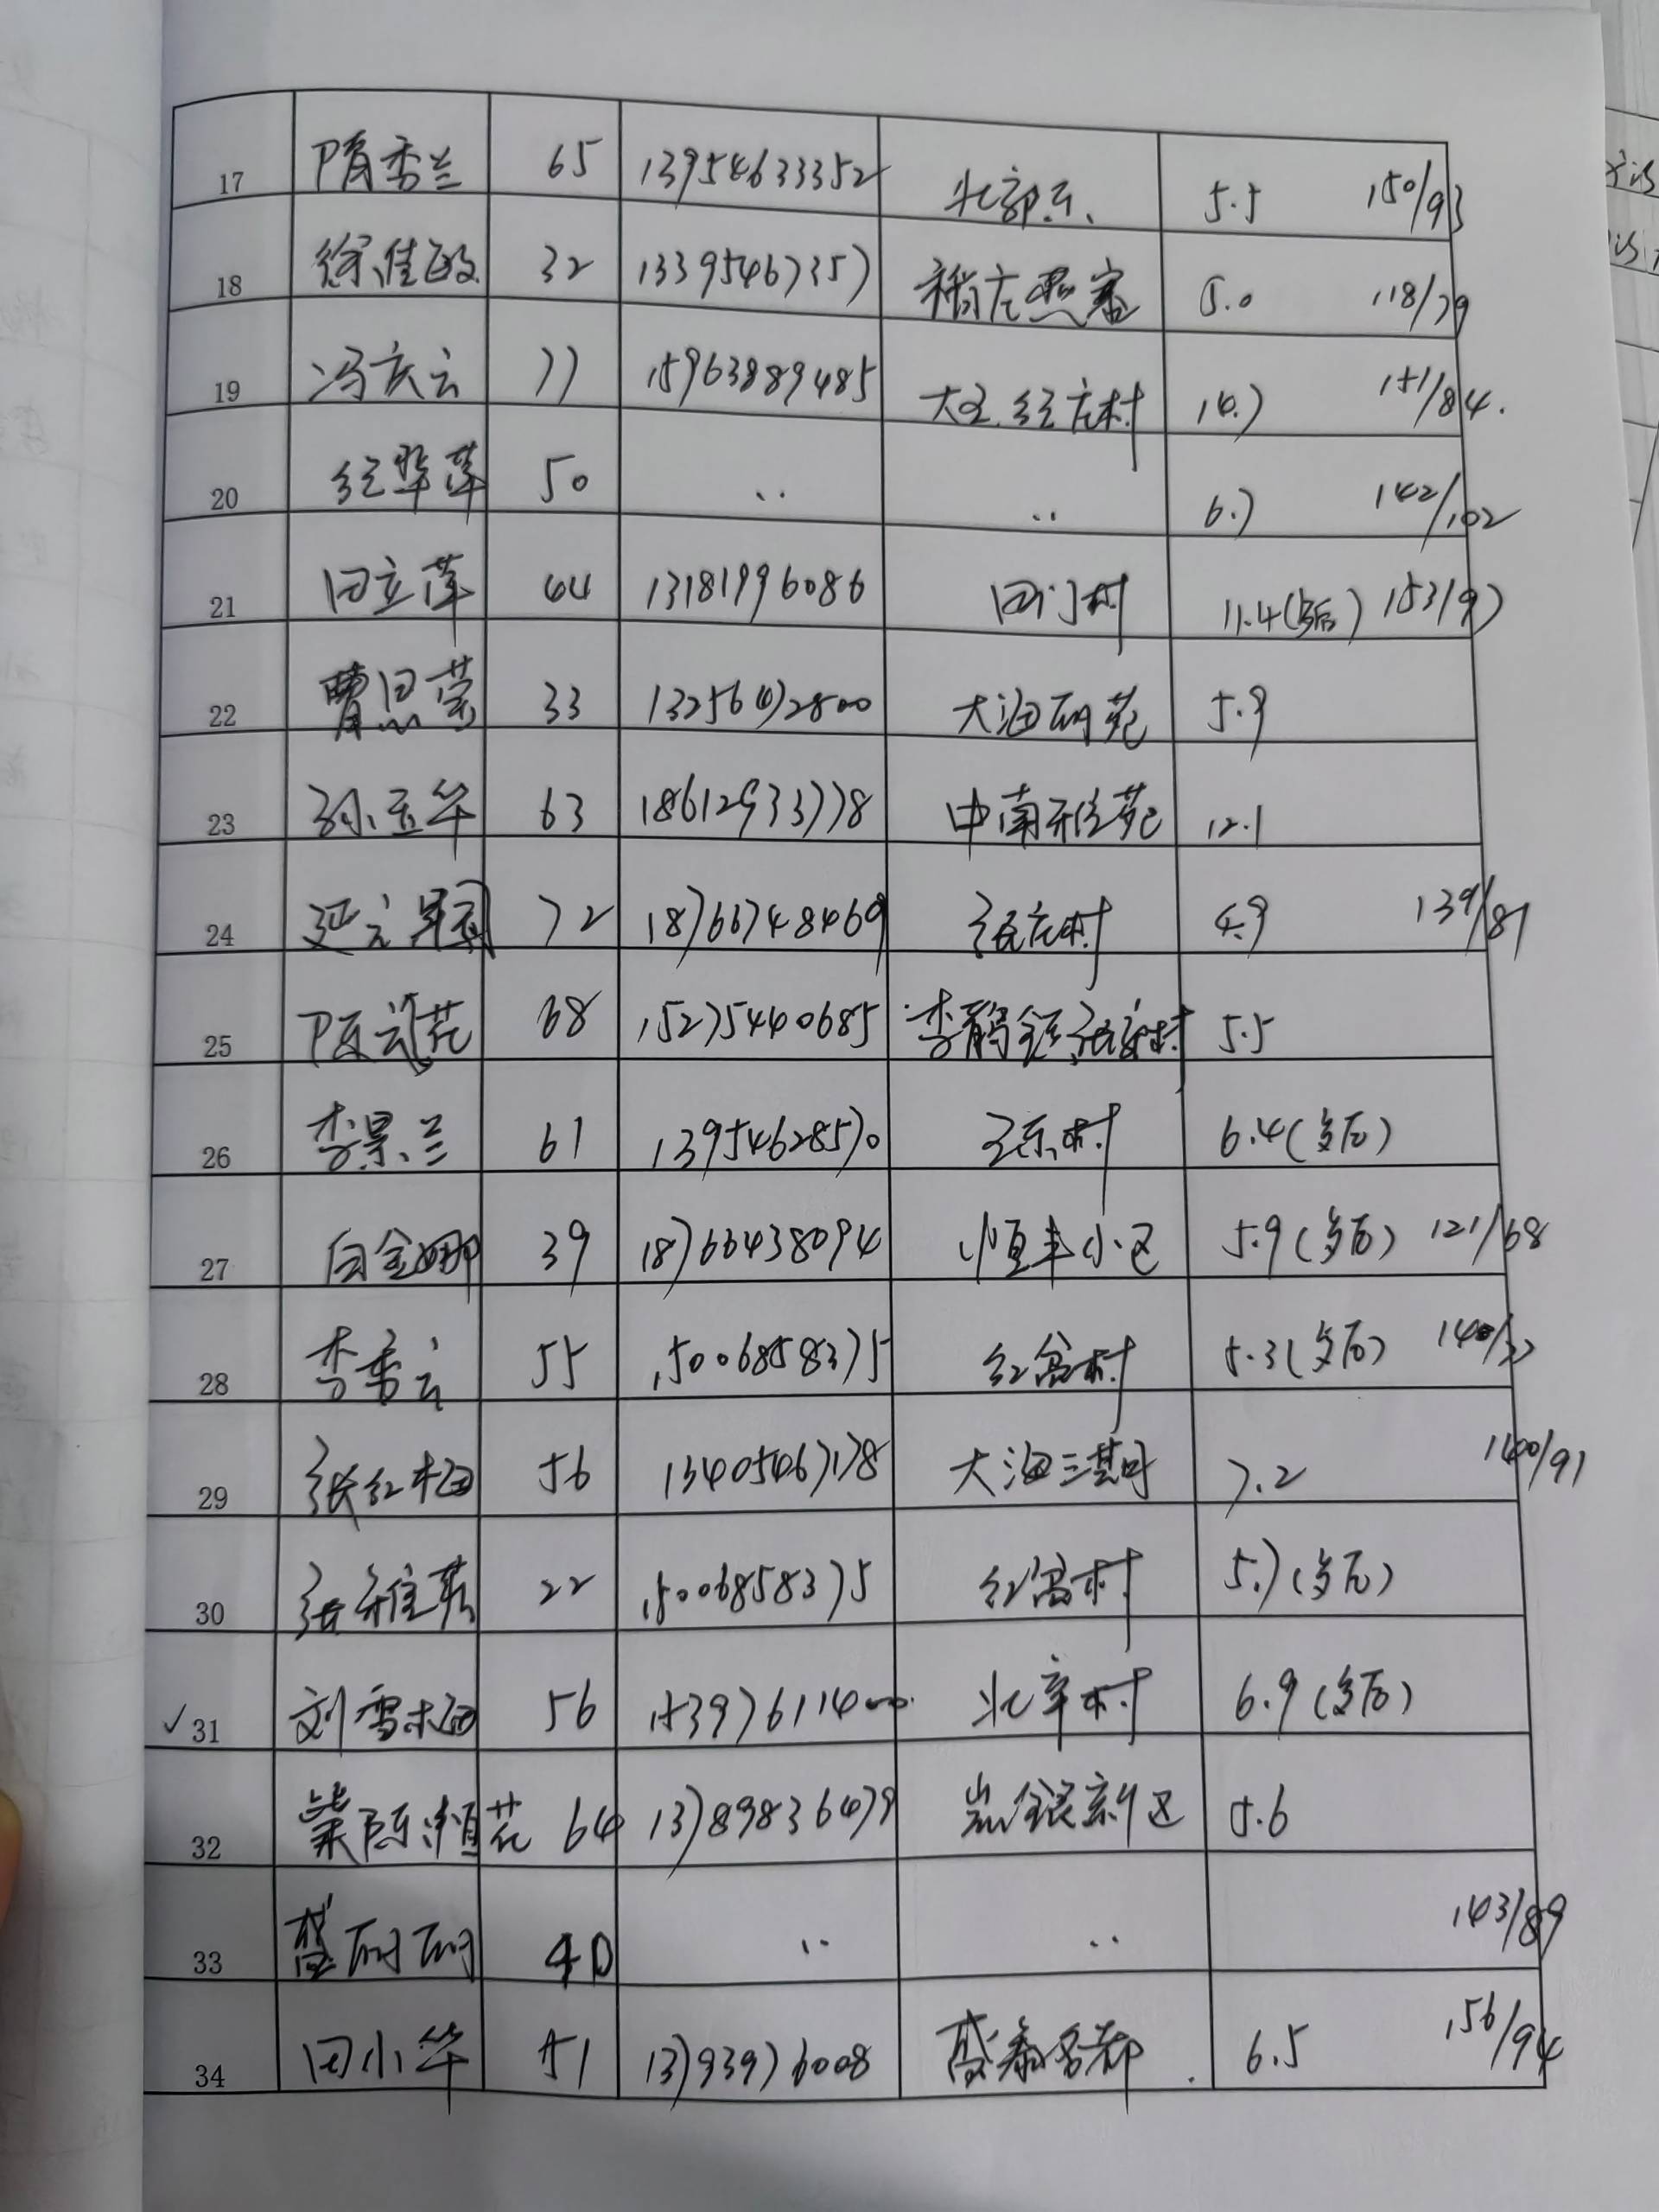 17 隋秀兰 65 13954633352 北郭庄 5.5 150/93
18 徐佳政 32 13395467357 稍庄 5.0 118/79
19 冯庆云 77 15963889485 大王 经庄村 10.7 151/84.
20 50 .. .. 6.7 142/102
21 田立莲 64 13181996086 田门村 11.4(多后) 153/97
22 曹思莹 33 13256492800 大海丽苑 5.9
23 孙玉华 63 18612933778 中南雅苑 12.1
24 延立 72 18766748469 张庄村 4.9 139/81
25 陈 花 68 15275440685 李鹊镇 5.5
26 李景兰 61 13954628570 王东村 6.4(多后)
27 白金娜 39 18766438094 恒丰小区 5.9(多后) 121/68
28 李秀云 55 15006858375 红盆村 5.3(多后) 140/77
29 张红梅 56 13405467178 大海三期 7.2 140/91
30 张雅 22 15006858375 红盆村 5.7(多后)
✓31 刘雪梅 56 北辛村 6.9(多后)
32 柴陈 花 64 13789836479 新区 5.6
33 盛丽丽 40 .. .. 143/89
34 田小华 51 13793976008 盛泰名都 6.5 156/94